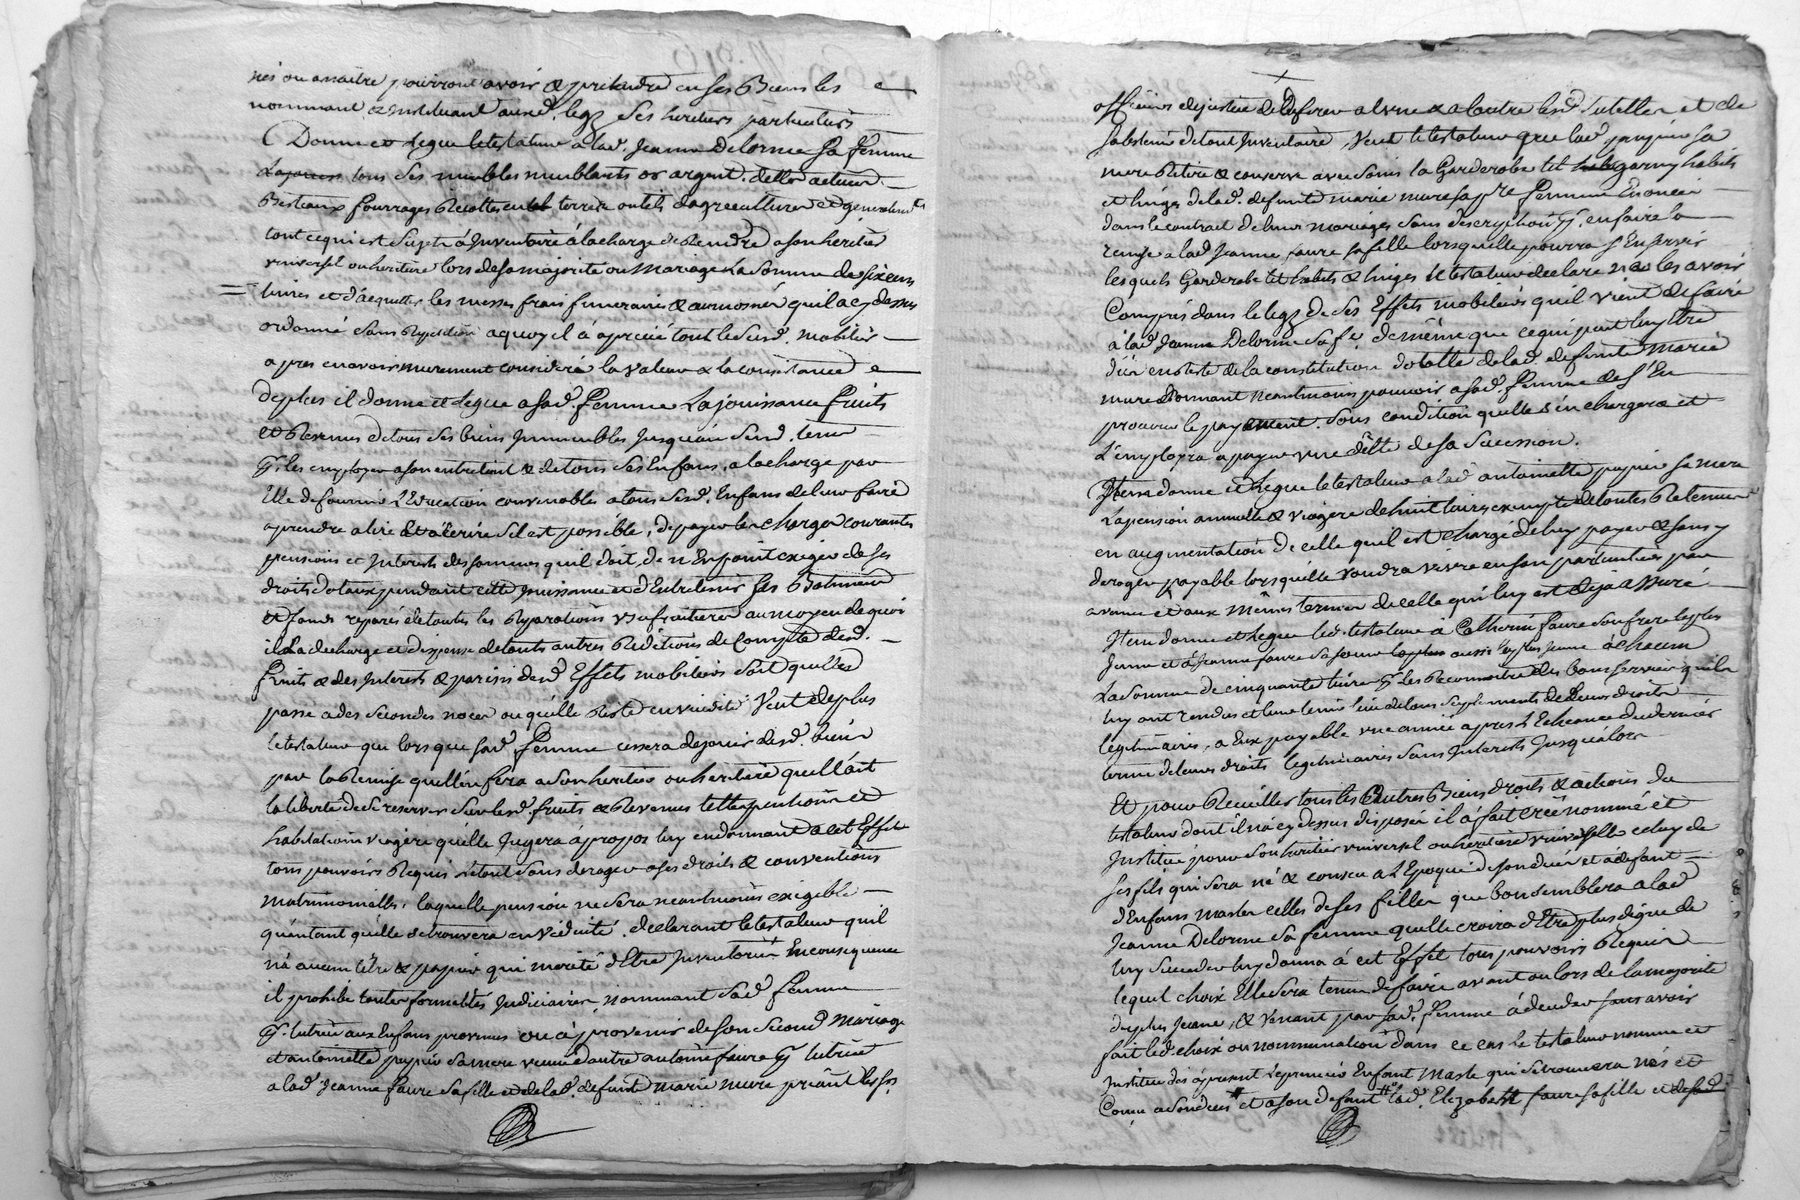 nés ou a naitre pourront avoir & pretendre en ses Biens les
nommant & instituant aud. legz ses heritiers particuliers
Donne et Legue le testateur a lad. Jeanne Delorme sa femme
tous ses meubles meublants or argent. dettes actives
Bestiaux fourrages Recoltes outils dagreculture et generalement
tout ce qui est sujet à Inventaire à la charge de Rendre a son heritier
universel ou heritiere lors de sa majorité ou Mariage La somme de six cens
livres et d'acquitter les messes frais funeraires & aumosnes quil a cy dessus
ordonné sans Repetition a quoy il à aprecié tout le susd. mobilier
apres en avoir murement consideré la valeur & la consistance
de plus il donne et Legue a sad. femme La jouissance fruits
et Revenus de tous ses biens Immeubles Jusqu'au susd. terme
pr. les employer a son entretient & de tous ses Enfans, a la charge par
Elle de fournir L'Education convenable a tous sesd. Enfans de leur faire
aprendre a lire & à Ecrire s'il est possible, de payer les charges courantes
pensions et Interests des sommes quil doit, de n'En point exiger de ses
droits dotaux pendant cette Jouissance et d'Entretenir ses Batiments
et fonds reparés de toutes les Reparations usufruitieres au moyen de quoi
il La decharge et dispense de touts autres Reditions de Compte desd.
fruits & des Interests & parisis desd. Effets mobiliers soit quelle
passe a des secondes noces ou quélle Reste en viduité Veut de plus
le testateur que lorsque sad. femme cessera de jouir desd. biens
par la Remise quelle en fera a son heritier ou heritiere quelle ait
la liberté de se reserver sur lesd. fruits & Revenus telle pention et
habitation viagere quélle Jugera à propos luy en donnant a cet Effet
tous pouvoirs Requis le tout sans deroger a ses droits & conventions
matrimonielles, laquelle pension ne sera neantmoins exigible
qu'autant quélle se trouvera en viduité. declarant le testateur quil
n'a aucun titre & papier qui merite d'Etre Inventorié En consequence
il prohibe toutes formalités Judiciaires, nommant sad. femme
pr. tutrice aux Enfans provenus ou à provenir de son second Mariage
et antoinette papier sa mere veuve d'autre antoine faure pr. tutrice
a lad. Jeanne faure sa fille et de lad. defunte marie mure priant les srs.
officiers de justice de deferer a l'une & a l'autre lesd. tutelles et de
sabstenir de tout Inventaire, Veut le testateur que lad. papier sa
mere Retire & conserve avec soins la Garderobe lit garny habits
et linges de lad. defunte marie mure sa pre. femme Enoncés
dans le contract de leur mariages sans description pr. en faire la
remise a lad. Jeanne faure sa fille lorsquelle pourra s'En servir
lesquels Garderobe lit habits & linges le testateur declare les avoir
Compris dans le legz de ses Effets mobiliers quil vient de faire
à lad. Jeanne Delorme sa fe. de même que ce qui peut luy Etre
dû en reste de la constitution dotalle de lad. defunte marie
mure donnant neantmoins pouvoir a sad. femme de s'En
procurer le payement. sous condition quelle s'en chargera et
L'employra a payer une dêtte de sa succession.
Item donne et Legue le testateur a lad. antoinette papier sa mere
La pension annuelle & viagere de huit livres exempte de toutes Retenues
en augmentation de celle quil est chargé de luy payer & sans y
deroger payable lorsquélle voudra vivre en son particulier par
avance et aux mêmes termes de celle qui luy est deja assuré
Item donne et Legue led. testateur à Catherin faure son frere le plus
Jeune et à Jeanne faure sa soeur aussi la plus jeune à chacun
La somme de cinquante livres pr. les Reconnoitre des bons services quils
luy ont rendus et leur tenir lieu de tous suplements de Leurs droits
legitimaires, a Eux payable une année apres L'Echeance du dernier
terme de leurs droits legitimaires sans Interests Jusquálors
Et pour Recuillir tous les autres Biens droits & actions du
testateur dont il n'a cy dessus disposer il à fait créé nommé et
Institué pour son heritier universel ou heritiere universelle celuy de
ses fils qui sera né & conceu a L'Epoque de son decés et a defaut
d'Enfans masles celles de ses filles que bon semblera a lad.
Jeanne Delorme sa femme quelle croira d'Etre plus digne de
luy succeder luy donnant à cet Effet tous pouvoirs Requis
lequel choix Elle sera tenue de faire avant ou lors de la majorité
du plus Jeune, & Venant par sad. femme à deceder sans avoir
fait led. choix ou nomination dans ce cas le testateur nomme et
Institue des à present le premier Enfant Masle qui se trouvera nés et
Conçu a son deces et a son defaut lad. Elizabeth faure sa fille et